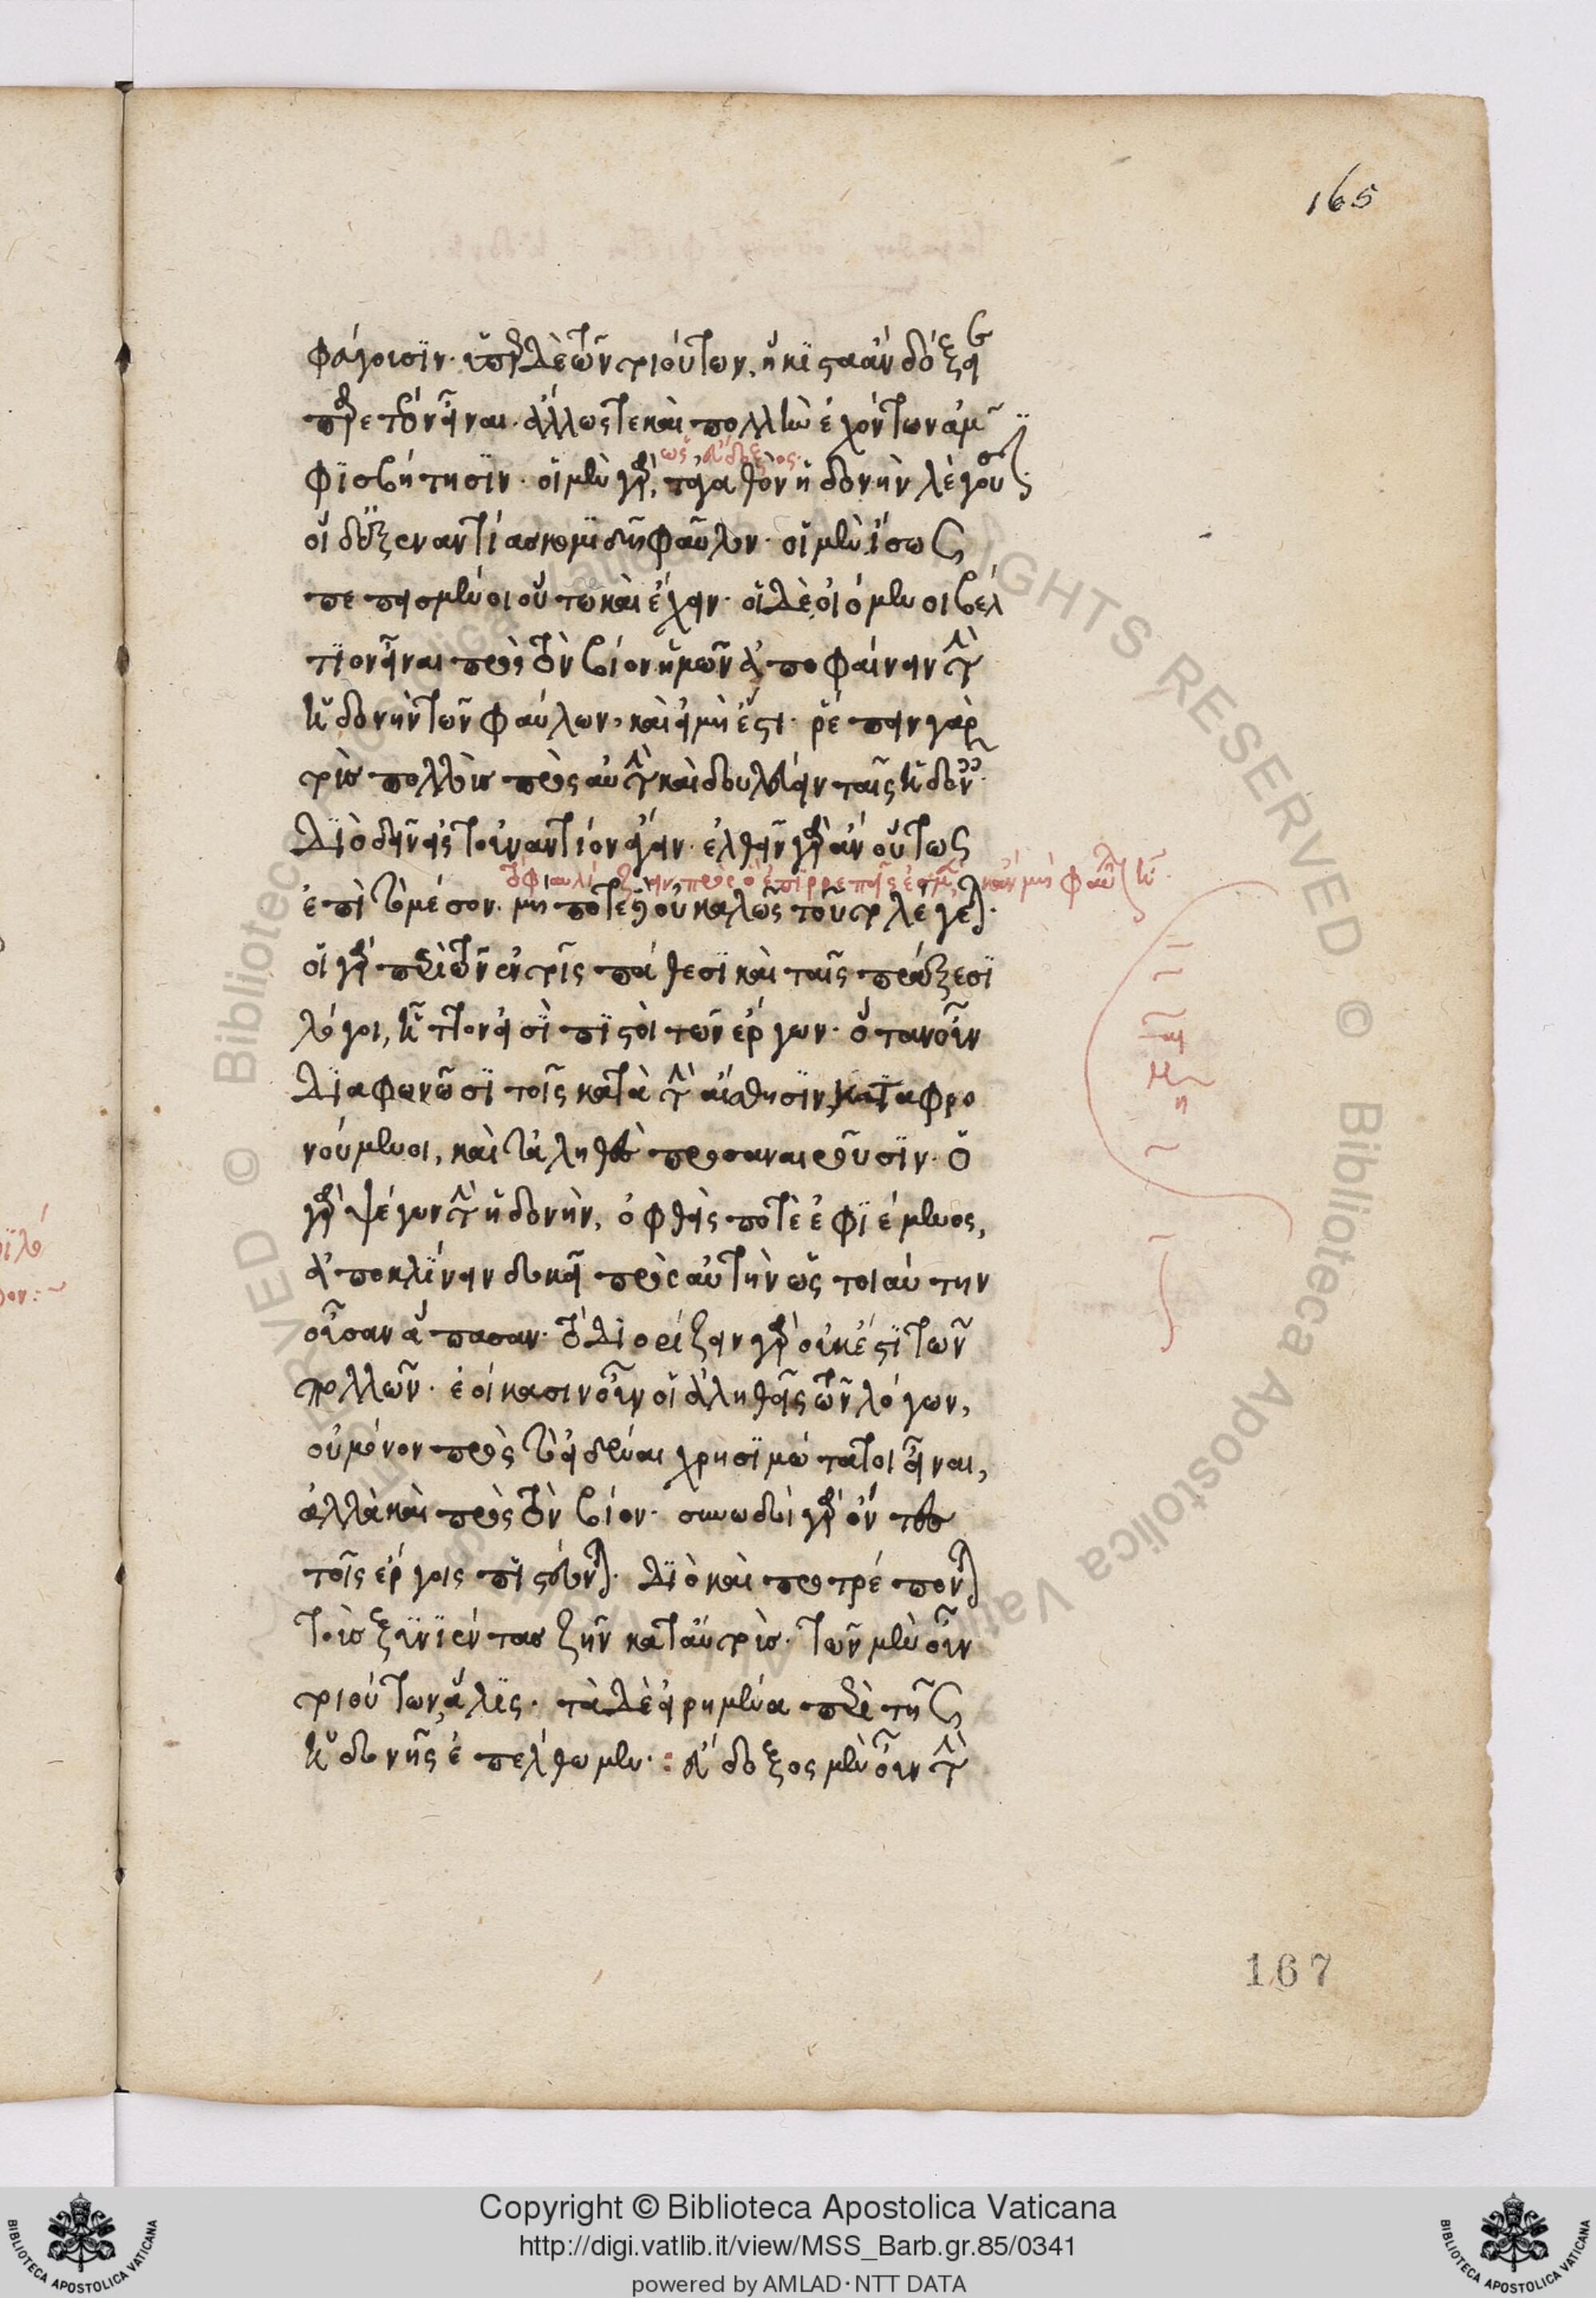 165
φάγοισϊν· ὑπὲρ δὲ τῶν τοιούτων, ἥκιστα ἂν δόξει
παρετέον εἶναι· ἄλλως τε καὶ πολλὴν ἐχόντων ἀμ
ὡς εὔδοξος·
φϊσβήτησϊν· οἱ μὲν γὰρ, τἀγαθὸν ἡδονὴν λέγουσιν·
οἱ δ' ἐξεναντίας κομϊδῆ φαῦλον· οἱ μὲν ἴσως
πεπεισμένοι οὕτω καὶ ἔχειν· οἱ δὲ, οἰόμενοι βέλ
τϊον εἶναι πρὸς τὸν βίον ἡμῶν ἀποφαίνειν τὴν
ἡδονὴν τῶν φαύλων, καὶ εἰ μὴ ἔστι· ῥέπειν γὰρ
τοὺς πολλοὺς πρὸς αὐτὴν καὶ δουλεύειν ταῖς ἡδοναῖς·
δϊὸ δεῖν εἰς τοὐναντίον ἄγειν· ἐλθεῖν γὰρ ἂν οὕτως
ἐπὶ τὸ μέσον· μή ποτε δὲ οὐ καλῶς τοῦτο λέγεται·
οἱ γὰρ περὶ τῶν ἐν τοῖς πάθεσϊ καὶ ταῖς πράξεσϊ
λόγοι, ἧττον εἰσϊ πϊστοὶ τῶν ἔργων· ὅταν οὖν
δϊαφωνῶσϊ τοῖς κατὰ τὴν αἴσθησϊν, καταφρο
νούμενοι, καὶ τἀληθὲς προσαναιροῦσϊν· ὁ
γὰρ ψέγων τὴν ἡδονὴν, ὀφθείς ποτε ἐφϊέμενος,
ἀποκλϊνειν δοκεῖ πρὸς αὐτὴν ὡς τοιαύτην
οὖσαν ἅπασαν· τὸ δϊορίζειν γὰρ οὐκ ἔστϊ τῶν
πολλῶν· ἐοίκασιν οὖν οἱ ἀληθεῖς τῶν λόγων,
οὐ μόνον πρὸς τὸ εἰδέναι χρησϊμώτατοι εἶναι,
ἀλλὰ καὶ πρὸς τὸν βίον· συνωδοὶ γὰρ ὄντες
τοῖς ἔργοις πϊστεύονται· δϊὸ καὶ προτρέπονται
τοὺς ξυνϊέντας ζῆν κατ' αὐτούς· τῶν μὲν οὖν
τοιούτων, ἅλϊς· τὰ δὲ εἰρημένα περὶ τῆς
ἡδονῆς ἐπέλθωμεν· : εὔδοξος μὲν οὖν τὴν
167
Copyright © Biblioteca Apostolica Vaticana
http://digi.vatlib.it/view/MSS_Barb.gr.85/0341
powered by AMLAD·NTT DATA
BIBLIOTECA APOSTOLICA VATICANA
BIBLIOTECA APOSTOLICA VATICANA